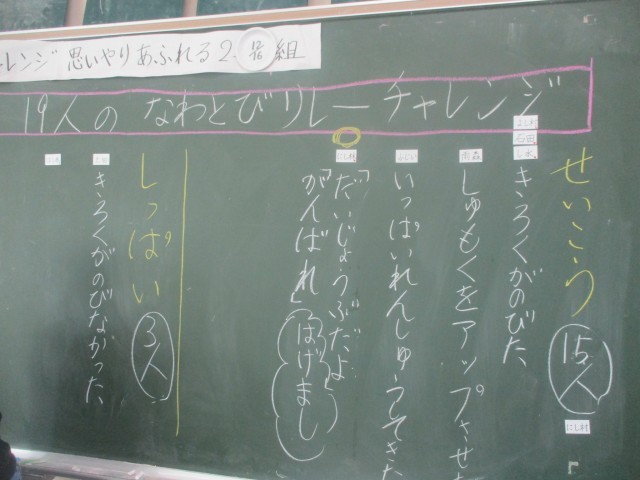 レンジ 思いやりあふれる2.
組
19人の なわとびリレーチャレンジ
せいこう
15人
にし村
石田
きろくがのびた
雨森
しゅもくをアップさせた
いっぱいれんしゅうしてきた
にし村
「だいじょうぶだよ
がんばれ」
(はげまし)
しっぱい
3人
きろくがのびなかった